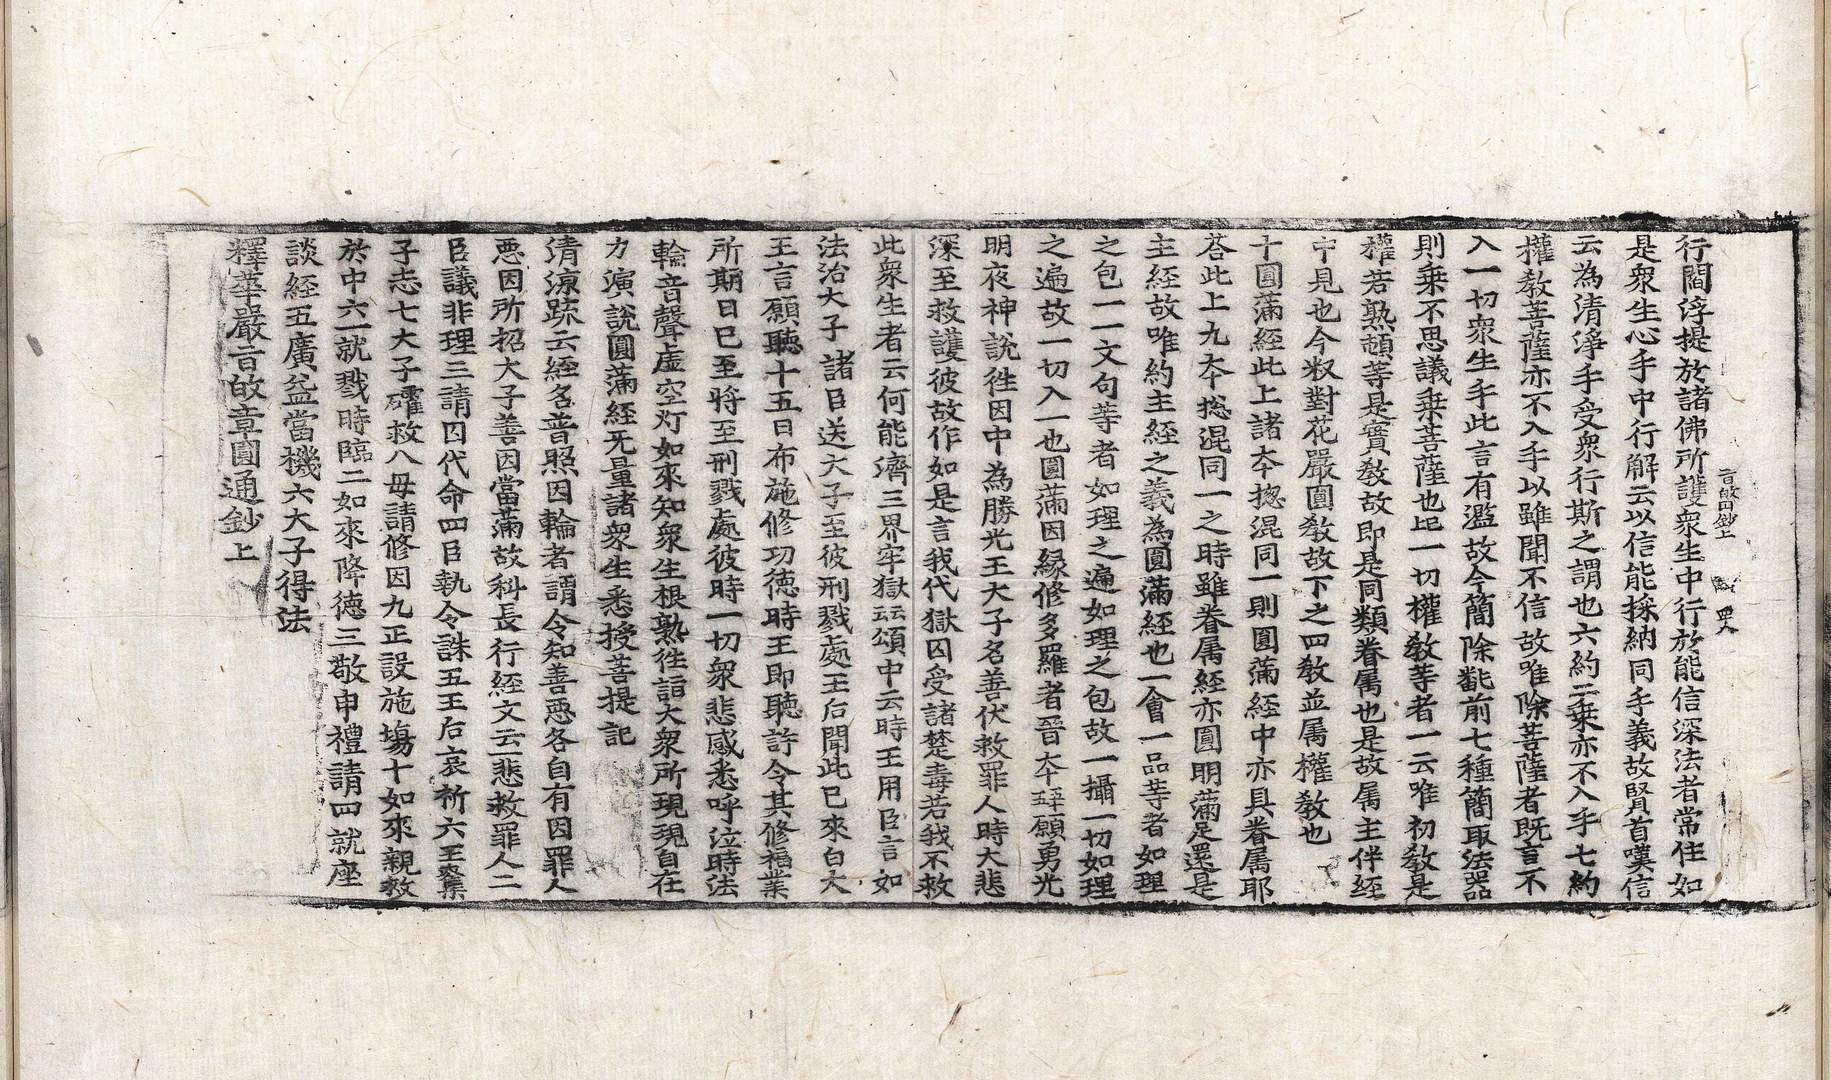 旨皈章鈔上
行閻浮提於諸佛所護衆生中行於能信深法者常住如
是衆生心手中行解云以信能採納同手義故賢首嘆信
云為清淨手受衆行斯之謂也六約二乘亦不入手七約
權教菩薩亦不入手以雖聞不信故唯除菩薩者旣言不
入一切衆生手此言有濫故今簡除㪽前七種簡取法器
則乘不思議乘菩薩也㠯一切權教等者一云唯初教是
權若熟頓等是實教故即是同類眷属也是故属主伴經
中見也今㕘對花嚴圓教故下之四教並属權教也
十圓滿經此上諸夲揔混同一則圓滿經中亦具眷属耶
荅此上九夲揔混同一之時雖眷属經亦圓明滿足還是
主經故唯約主經之義為圓滿經也一會一品等者如理
之包一一文句等者如理之遍如理之包故一攝一切如理
之遍故一切入一也圓滿因緣修多羅者晉夲 願勇光
明夜神說徃因中為勝光王大子名善伏救罪人時大悲
深至救護彼故作如是言我代獄囚受諸楚毒若我不救
此衆生者云何能濟三界牢獄 頌中云時王用臣言如
法治大子 諸臣送大子至彼刑戮處王后聞此已來白大
王言願聽十五日布施修功徳時王即聽許令其修福業
所期日已至將至刑戮處彼時一切衆悲感悉呼泣時法
輪音聲虛空灯如來知衆生根熟徃詣大衆所現現自在
力演說圓滿經无量諸衆生悉授菩提記
清涼䟽云經名普照因輪者謂令知善惡各自有因罪人
惡因所招大子善因當滿故科長行經文云一悲救罪人二
臣議非理三請囚代命四臣執令誅五王后哀祈六王 
子志七大子 救八母請修因九正設施塲十如來親救
於中六一就戮時臨二如來降徳三敬申禮請四就座
談經五廣益當機六大子得法
釋華嚴旨皈章圓通鈔上